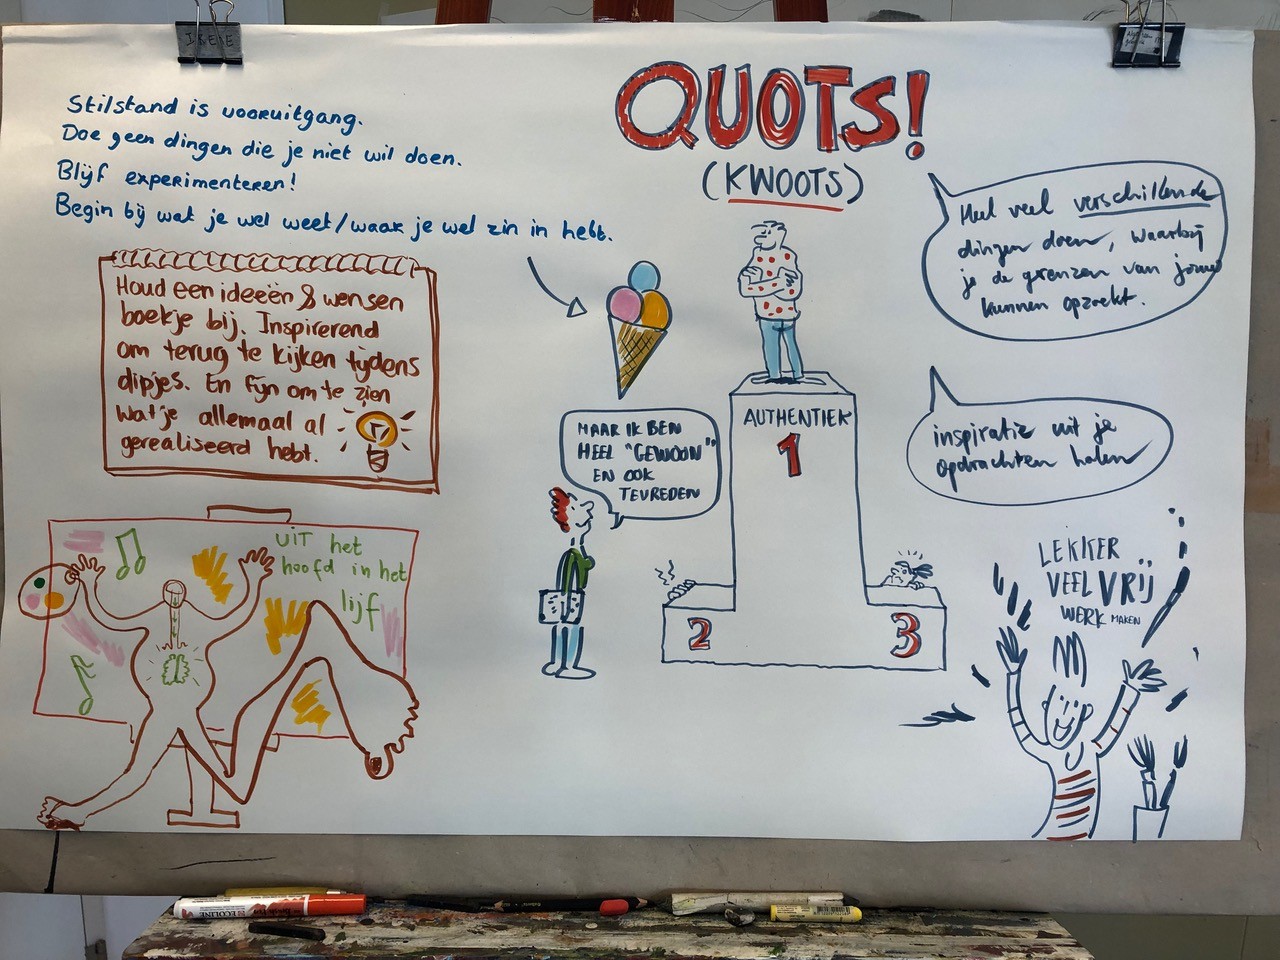 QUOTS!
(KWOOTS)
Stilstand is vooruitgang.
Doe geen dingen die je niet wil doen.
Blijf experimenteren!
Begin bij wat je wel weet/waar je wel zin in hebt.
Houd een ideeën & wensen
boekje bij. Inspirerend
om terug te kijken tijdens
dipjes. En fijn om te zien
wat je allemaal al
gerealiseerd hebt.
Heel veel verschillende
dingen doen, waarbij
je de grenzen van jouw
kunnen opzoekt.
MAAR IK BEN
HEEL "GEWOON"
EN OOK
TEVREDEN
AUTHENTIEK
1
2
3
inspiratie uit je
opdrachten halen
UIT het
hoofd in het
lijf
LEKKER
VEEL VRIJ
WERK MAKEN
ECOLINE